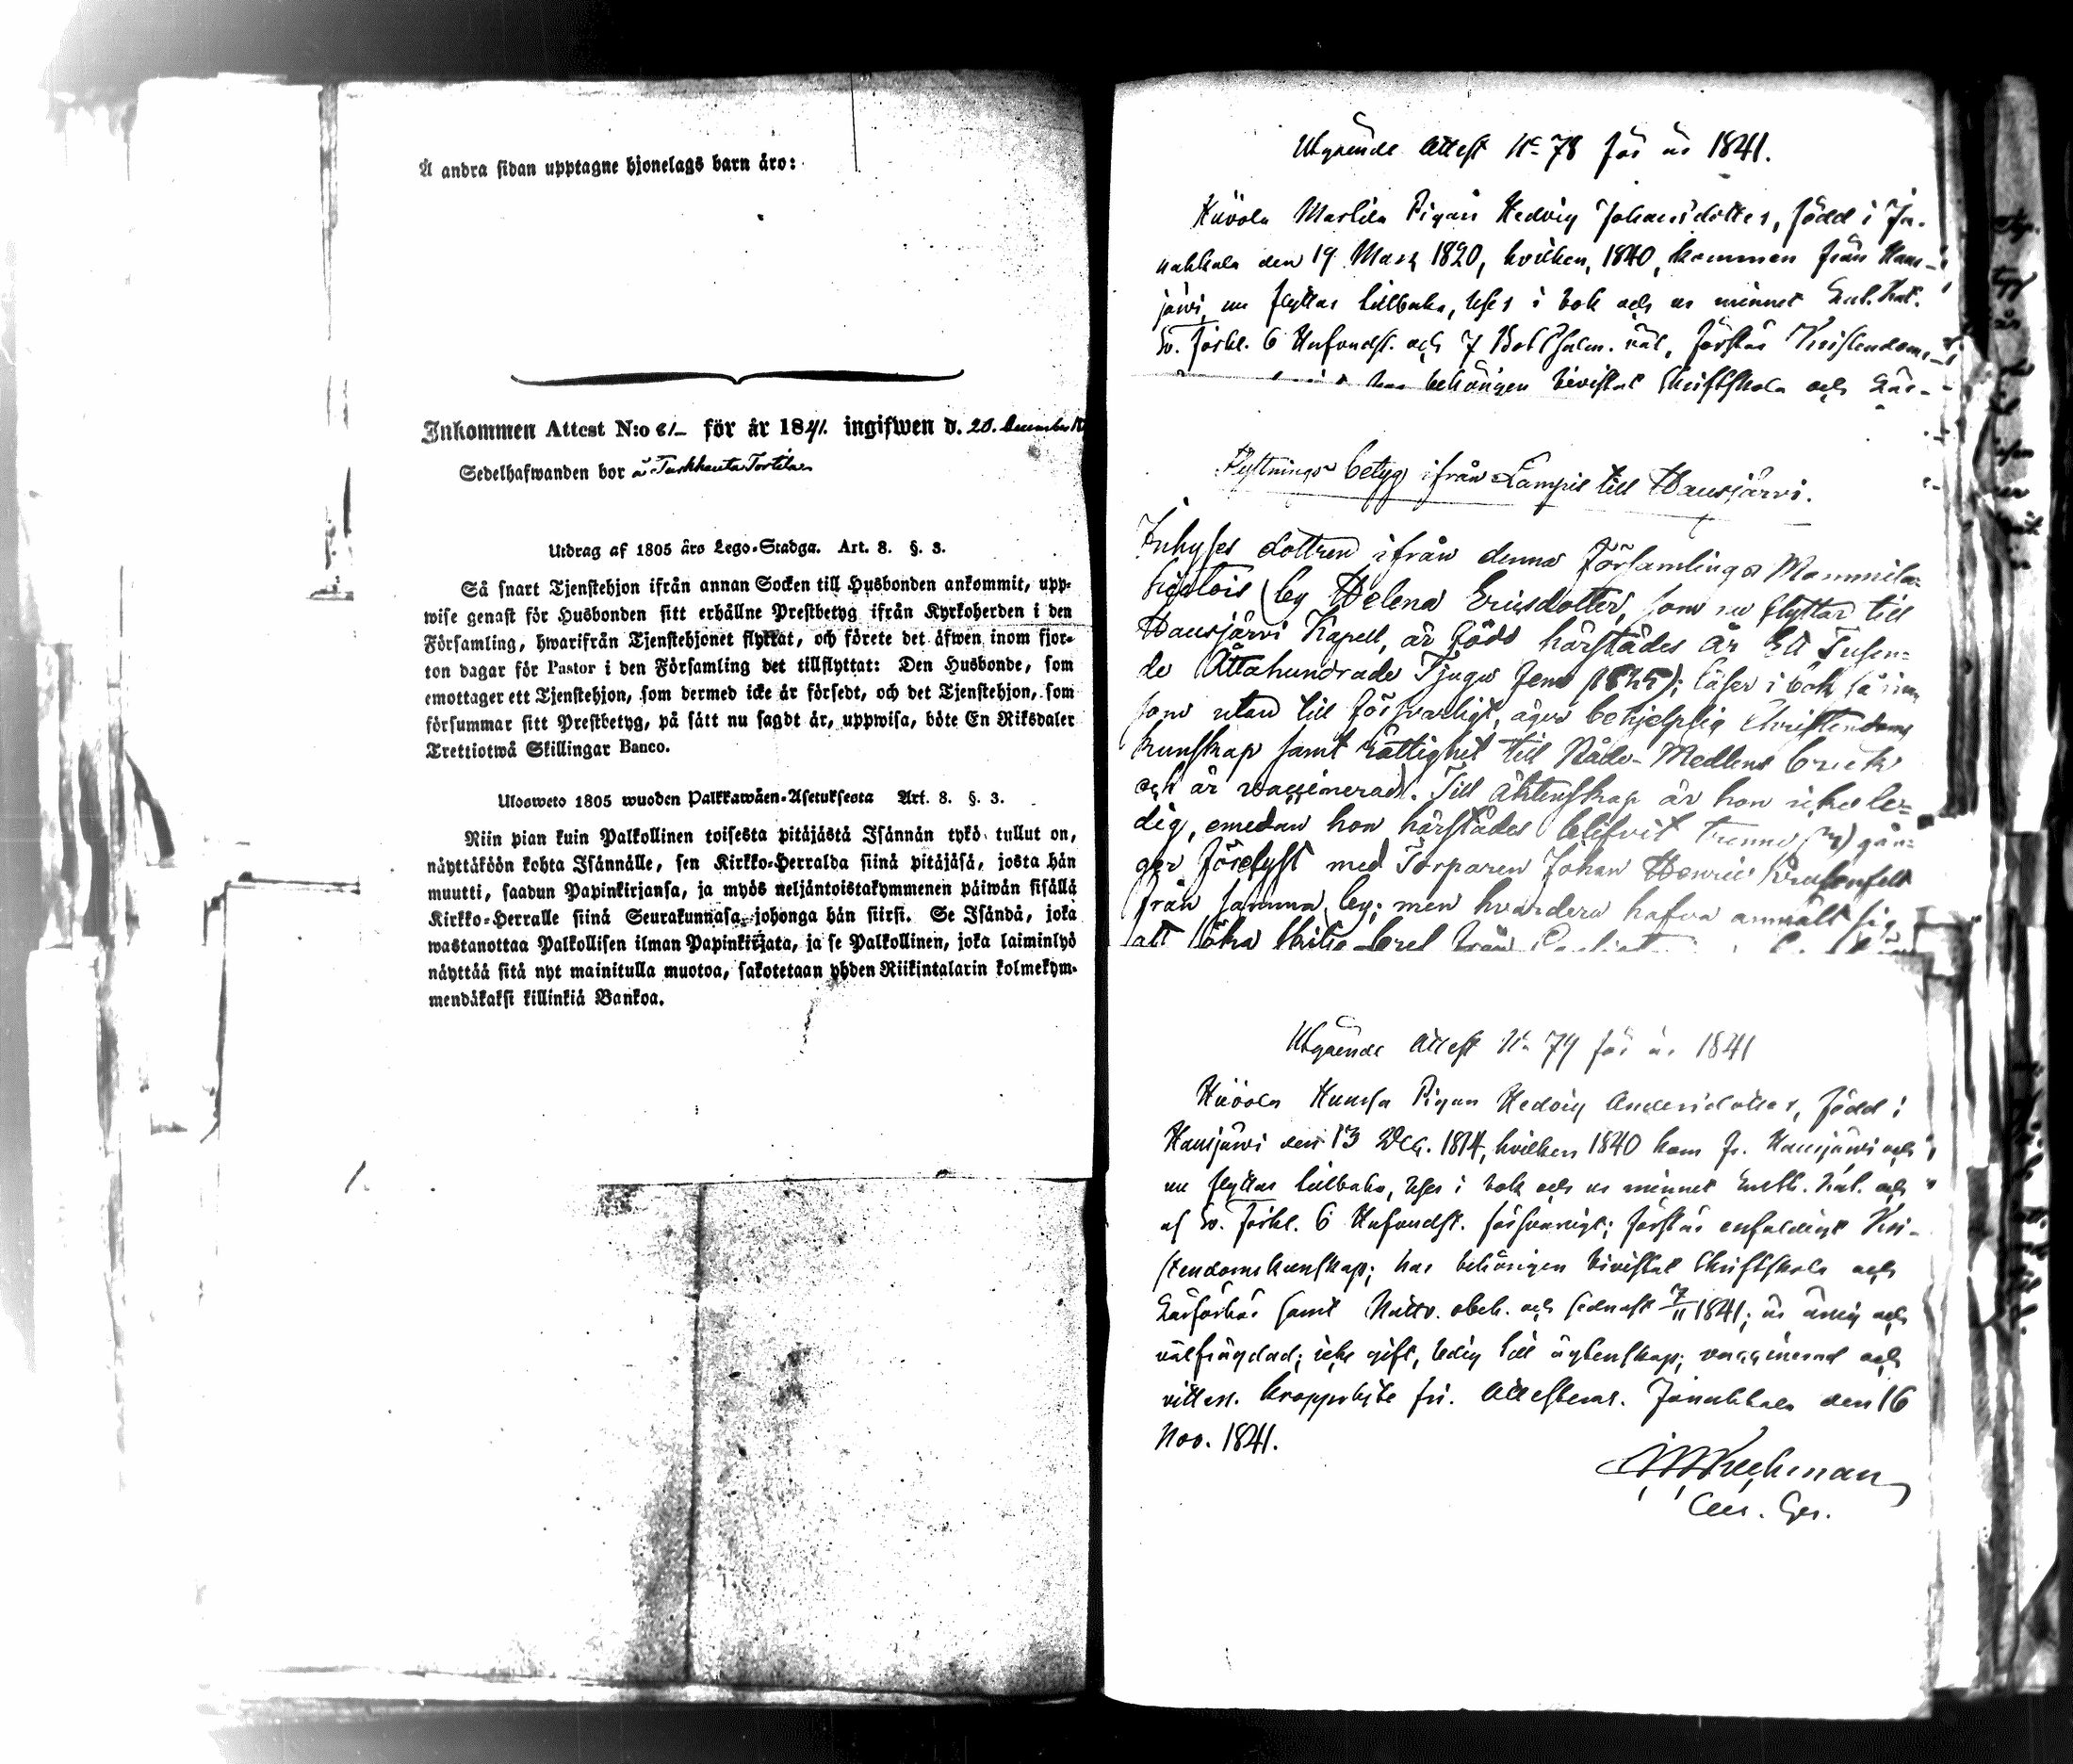 Å andra sidan upptagne hjonelags barn äro:
Inkommen Attest N:o 81 för år 1841. ingifwen d. 20. December
Sedelhafwanden bor å Tarkkanta Torkila
Utdrag af 1805 års Lego-Stadga. Art. 8. §. 3.
Så snart Tjenstehjon ifrån annan Socken till Husbonden ankommit, upp-
wise genast för Husbonden sitt erhållne Prestbetyg ifrån Kyrkoherden i den
Församling, hwarifrån Tjenstehjonet flyttat, och förete det äfwen inom fjor-
ton dagar för Pastor i den Församling det tillflyttat: Den Husbonde, som
emottager ett Tjenstehjon, som dermed icke är försedt, och det Tjenstehjon, som
försummar sitt Prestbetyg, på sätt nu sagdt är, uppwisa, böte En Riksdaler
Trettiotwå Skillingar Banco.
Ulosweto 1805 wuoden Palkkawäen-Asetuksesta Art. 8. §. 3.
Niin pian kuin Palkollinen toisesta pitäjästä Isännän tykö tullut on,
näyttäköön kohta Isännälle, sen Kirkko-Herralda siinä pitäjäsä, josta hän
muutti, saadun Papinkirjansa, ja myös neljäntoistakymmenen päiwän sisällä
Kirkko-Herralle siinä Seurakunnasa, johonga hän siirsi. Se Isändä, joka
wastanottaa Palkollisen ilman Papinkirjata, ja se Palkollinen, joka laiminlyö
näyttää sitä nyt mainitulla muotoa, sakotetaan yhden Riikintalarin kolmekym-
mendäkaksi killinkiä Bankoa.
Utgående Attest No 78 för år 1841.
Marlila Pigan Hedvig Johansdotter, född i Ja-
nakkala den 19 Mars 1820, hvilken, 1840, kommen från Haus-
järvi, nu flyttar tillbaka, läser i bok och ur minnet
Sv. förkl. 6 Hufvudst. och 7 Bot Psalm. väl, förstår Kristendoms-
har behörigen bivistat Skriftskola och Läs-
Flyttnings betyg ifrån Lampis till Hausjärvi.
Inhyses dottren ifrån denna Församling Mommila
by Helena Ericsdotter, som nu flyttar till
Hausjärvi Kapell, är född härstädes år Ett Tusen-
de Åttahundrade Tjugu fem (1825); läser i bok så
som utan till försvarligt, äger behjelplig Christendoms
kunskap samt rättighet till Nåde-Medlens bruk
och är vaccinerad. Till äktenskap är hon icke le-
dig, emedan hon härstädes blifvit trenne gån-
ger förelyst med Torparen Johan Henric
från samma by; men hvardera hafva anmält sig
att söka
Utgående Attest No 79 för år 1841
Pigan Hedvig Andersdotter, född i
Hausjärvi den 13 Dec. 1814, hvilken 1840 kom fr. Hausjärvi och
nu flyttar tillbaka, läser i bok och ur minnet Luth. Kat. och
af Sv. förkl. 6 Hufvudst. försvarligt; förstår enfaldigt Kri-
stendomskunskap; har behörigen bivistat Skriftskola och
Läsförhör samt Nattv. och sednast 7/11 1841; är ärlig och
välfrägdad; icke gift, ledig till äktenskap; vaccinerad och
kroppslyte fri. Attesteras. Janakkala den 16
Nov. 1841.